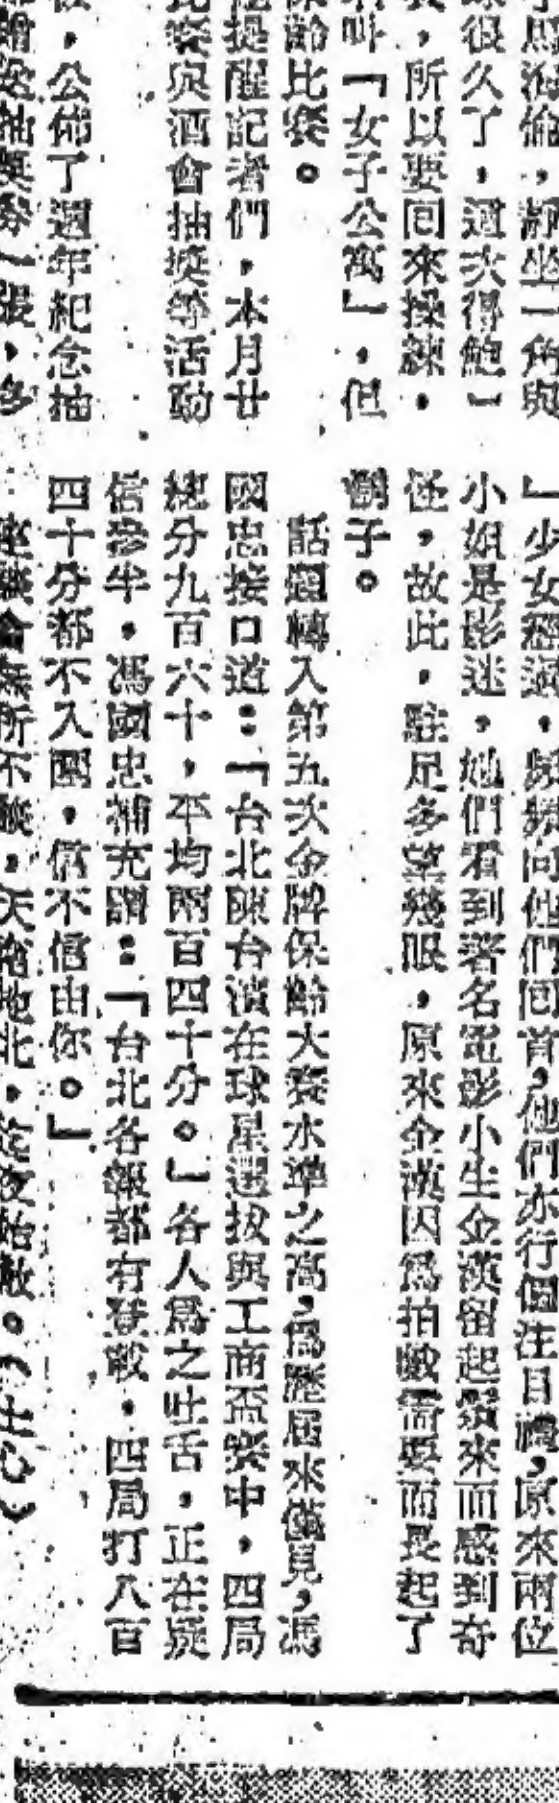 倫，靜坐一角與
很久了，這次得鮑」
，所以要回來操練。
叫「女子公寓」，但
齡比賽。
提醒記者們，本月廿
賽與酒會抽獎等活動
，公佈了週年紀念抽
抽獎券一張，多
」少女經過，頻頻向他們回首，他們亦行個注目禮，原來兩位
小姐是影迷，她們看到著名電影小生金漢留起鬚來而感到奇
怪，故此，駐足多望幾眼，原來金漢因為拍戲需要而長起了
鬍子。
話題轉入第五次金牌保齡大賽水準之高，為歷屆來僅見，馮
國忠接口道：「台北陳台濱在球星選拔與工商盃賽中，四局
總分九百六十，平均兩百四十分。」各人為之吐舌，正在疑
信參半，馮國忠補充謂：「台北各報都有登載，四局打八百
四十分都不入圍，信不信由你。」
座談會無所不談，天南地北，迄夜始散。